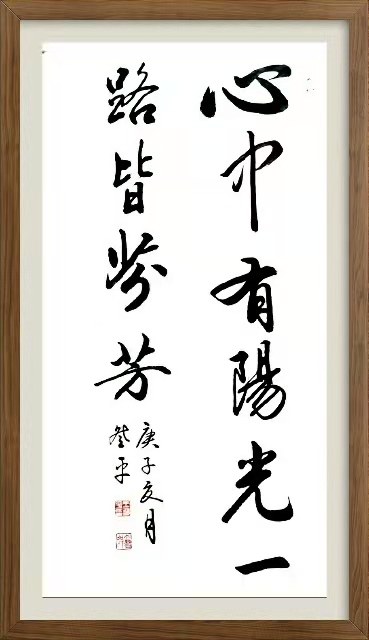 心中有陽光一
路皆芬芳
庚子夏月
平